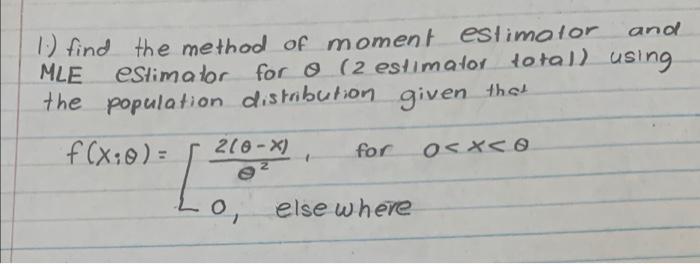 1.) find the method of moment estimator and
MLE estimator for θ (2 estimator total) using
the population distribution given that
f(x;θ) = [ 2(θ-x)/θ², for 0<x<θ
0, elsewhere